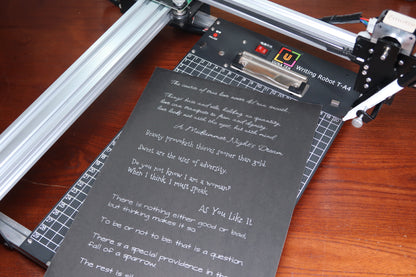 Writing Robot T-A4
The course of true love never did run smooth.
Things base and vile, holding no quantity,
love can transpose to form and dignity.
love looks not with the eyes, but with mind
A Midsummer Night's Dream
Beauty provoketh thieves sooner than gold.
Sweet are the uses of adversity.
Do you not know I am a woman?
When I think, I must speak.
As You Like It
There is nothing either good or bad,
but thinking makes it so.
To be or not to be: that is a question
There's a special providence in the
fall of a sparrow.
The rest is